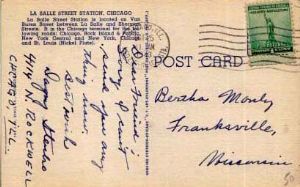 LA SALLE STREET STATION, CHICAGO
La Salle Street Station is located on Van
Buren Street between La Salle and Sherman
Streets. It is the Chicago terminal for the
following roads: Chicago, Rock Island & Pacific,
New York Central and New York, Chicago
and St. Louis (Nickel Plate).
POST CARD
Dear Friend:
Sorry I can't
send you any
thing now.
Bertha Mouly
Franksville,
Wisconsin
Stanley
4144 N. ROCKWELL
CHICAGO, ILL.
50